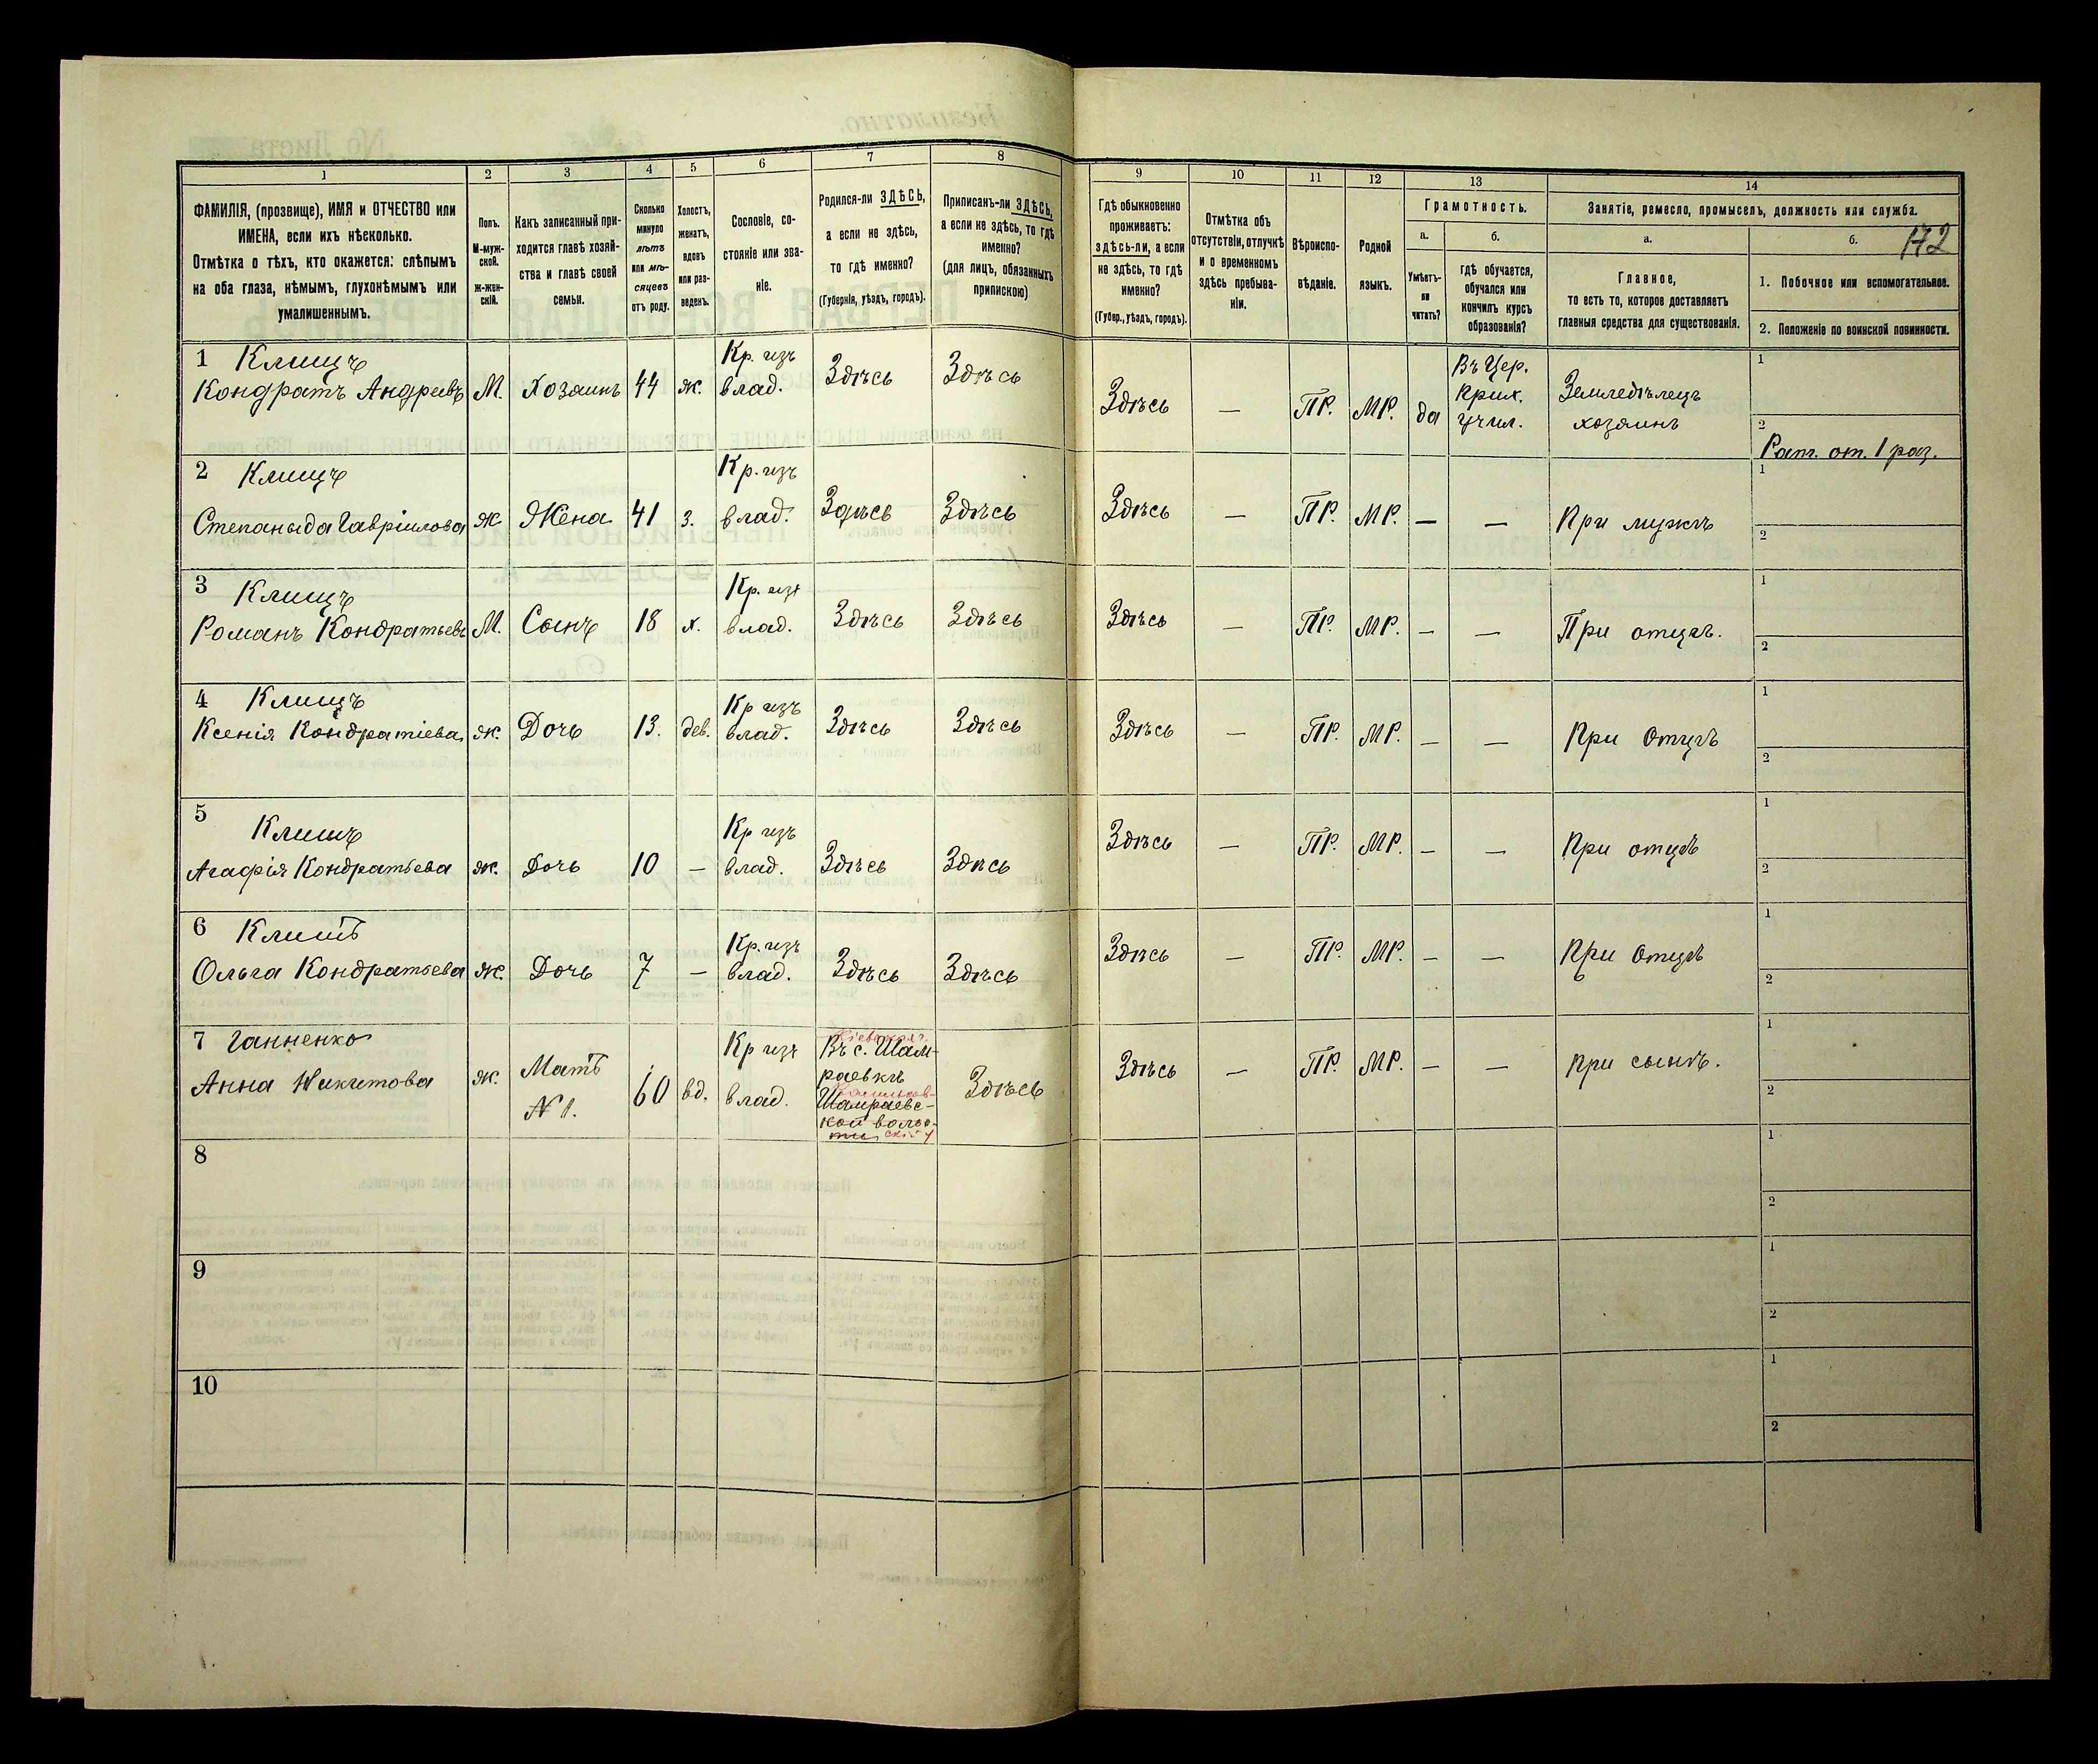 1 2 3 4 5 6 7 8 9 10 11 12 13 14
ФАМИЛІЯ, (прозвище), ИМЯ и ОТЧЕСТВО или
ИМЕНА, если ихъ нѣсколько.
Отмѣтка о тѣхъ, кто окажется: слѣпымъ
на оба глаза, нѣмымъ, глухонѣмымъ или
умалишеннымъ.
Полъ.
М-муж-
ской.
ж-жен-
скій.
Какъ записанный при-
ходится главѣ хозяй-
ства и главѣ своей
семьи.
Сколько
минуло
лѣтъ
или мѣ-
сяцевъ
отъ роду.
Холостъ,
женатъ,
вдовъ
или раз-
веденъ.
Сословіе, со-
стояніе или зва-
ніе.
Родился-ли ЗДѢСЬ,
а если не здѣсь,
то гдѣ именно?
(Губернія, уѣздъ, городъ).
Приписанъ-ли ЗДѢСЬ,
а если не здѣсь, то гдѣ
именно?
(для лицъ, обязанныхъ
припискою)
Гдѣ обыкновенно
проживаетъ:
здѣсь-ли, а если
не здѣсь, то гдѣ
именно?
(Губер., уѣздъ, городъ).
Отмѣтка объ
отсутствіи, отлучкѣ
и о временномъ
здѣсь пребыва-
ніи.
Вѣроиспо-
вѣданіе.
Родной
языкъ.
Грамотность.
а.
Умѣетъ-
ли
читать?
б.
гдѣ обучается,
обучался или
кончилъ курсъ
образованія?
Занятіе, ремесло, промыселъ, должность или служба.
а.
Главное,
то есть то, которое доставляетъ
главныя средства для существованія.
б.
172
1. Побочное или вспомогательное.
2. Положеніе по воинской повинности.
1 Клищъ
Кондратъ Андреевъ М. Хозяинъ 44 ж.
Кр. изъ
влад.
Здѣсь Здѣсь Здѣсь — ПР. МР. да
Въ Цер.
Прих.
Учил.
Земледѣлецъ
хозяинъ
1
2
Рат. от. 1 раз.
2 Клищъ
Степанида Гавріилова ж Жена 41 з.
Кр. изъ
влад.
Здѣсь Здѣсь Здѣсь — ПР. МР. — — При мужѣ
1
2
3 Клищъ
Романъ Кондратьевъ М. Сынъ 18 х.
Кр. изъ
влад.
Здѣсь Здѣсь Здѣсь — ПР. МР. — — При отцѣ.
1
2
4 Клищъ
Ксенія Кондратіева ж. Дочь 13. дев.
Кр изъ
влад.
Здѣсь Здѣсь Здѣсь — ПР. МР. — — При Отцѣ
1
2
5
Клищъ
Агафія Кондратьева ж. Дочь 10 —
Кр изъ
влад.
Здѣсь Здѣсь Здѣсь — ПР. МР. — — При отцѣ
1
2
6 Клищъ
Ольга Кондратьева ж. Дочь 7 —
Кр. изъ
влад.
Здѣсь Здѣсь Здѣсь — ПР. МР. — — При Отцѣ
1
2
7 Ганненко
Анна Никитова ж.
Мать
№ 1.
60 вд.
Кр изъ
влад.
Въ с. Шам-
раевкѣ
Шамраевс-
кой волос-
ти
Здѣсь Здѣсь — ПР. МР. — — При сынѣ.
1
2
8
1
2
9
1
2
10
1
2